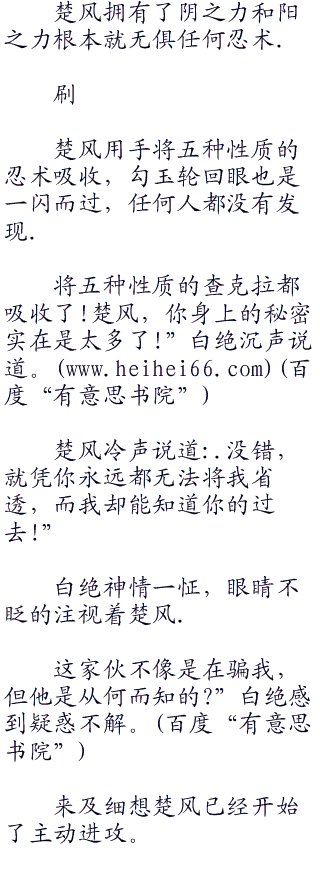 楚风拥有了阴之力和阳
之力根本就无俱任何忍术.
刷
楚风用手将五种性质的
忍术吸收，勾玉轮回眼也是
一闪而过，任何人都没有发
现.
将五种性质的查克拉都
吸收了!楚风，你身上的秘密
实在是太多了!”白绝沉声说
道。(www.heihei66.com)(百
度“有意思书院”)
楚风冷声说道:.没错，
就凭你永远都无法将我省
透，而我却能知道你的过
去!”
白绝神情一怔，眼睛不
眨的注视着楚风.
这家伙不像是在骗我，
但他是从何而知的?”白绝感
到疑惑不解。(百度“有意思
书院”)
来及细想楚风已经开始
了主动进攻。